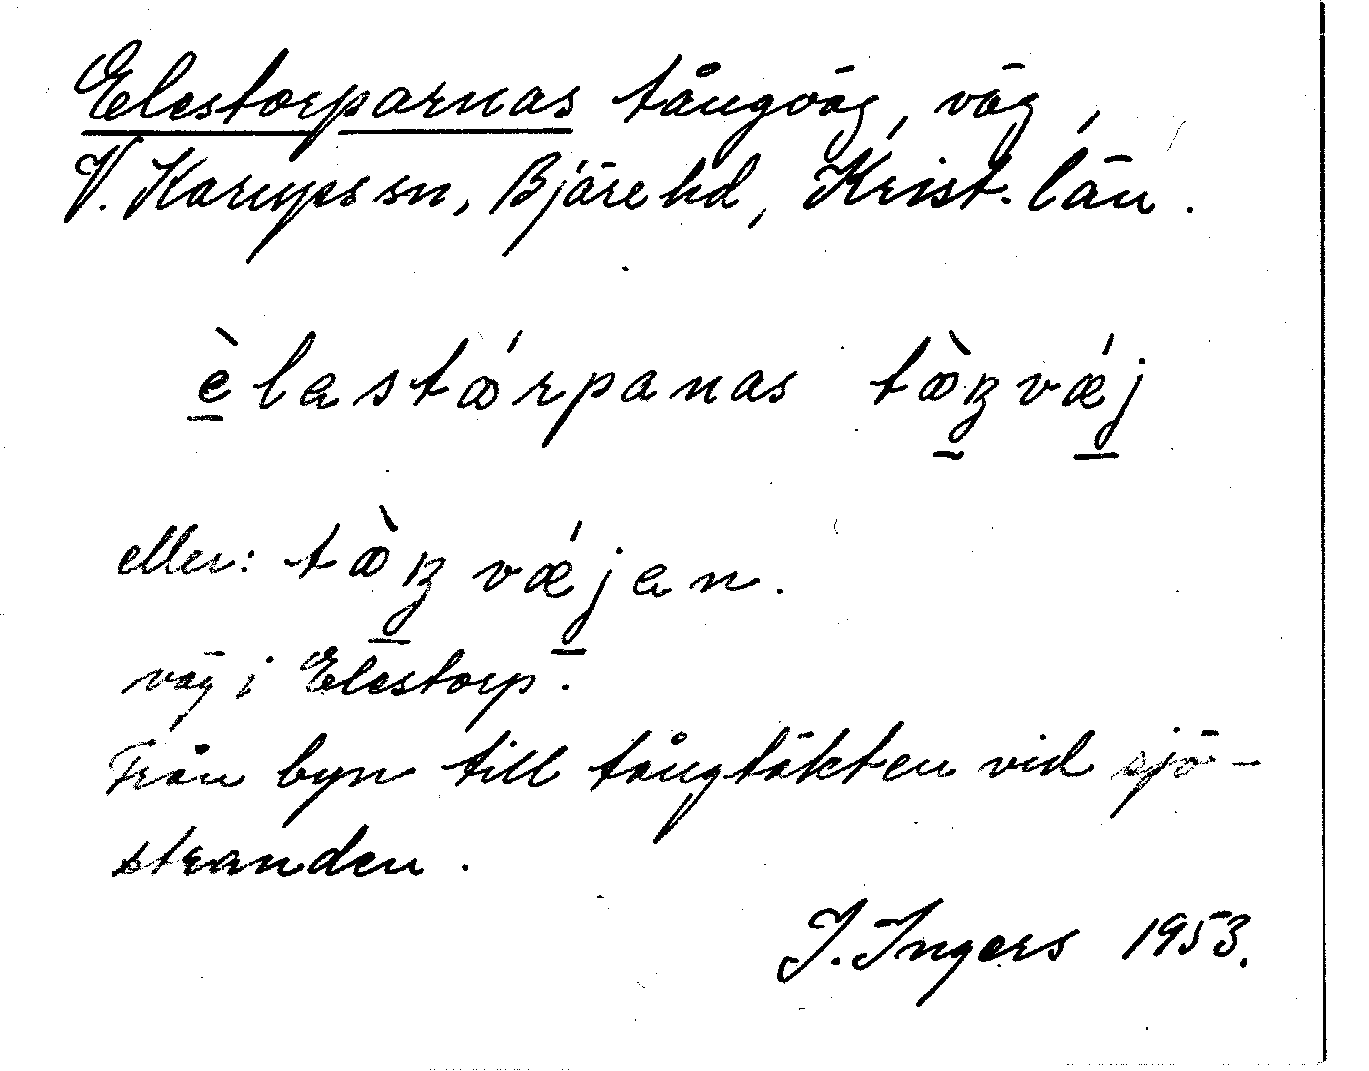 Elestorparnas tångväg, väg,
V. Karups sn, Bjäre hd, Krist. län.
èlastórpanas tòŋvǽj
eller: tòŋvǽjen.
väg i Elestorp.
Från byn till tångtäkten vid sjö-
stranden.
I. Ingers 1953.